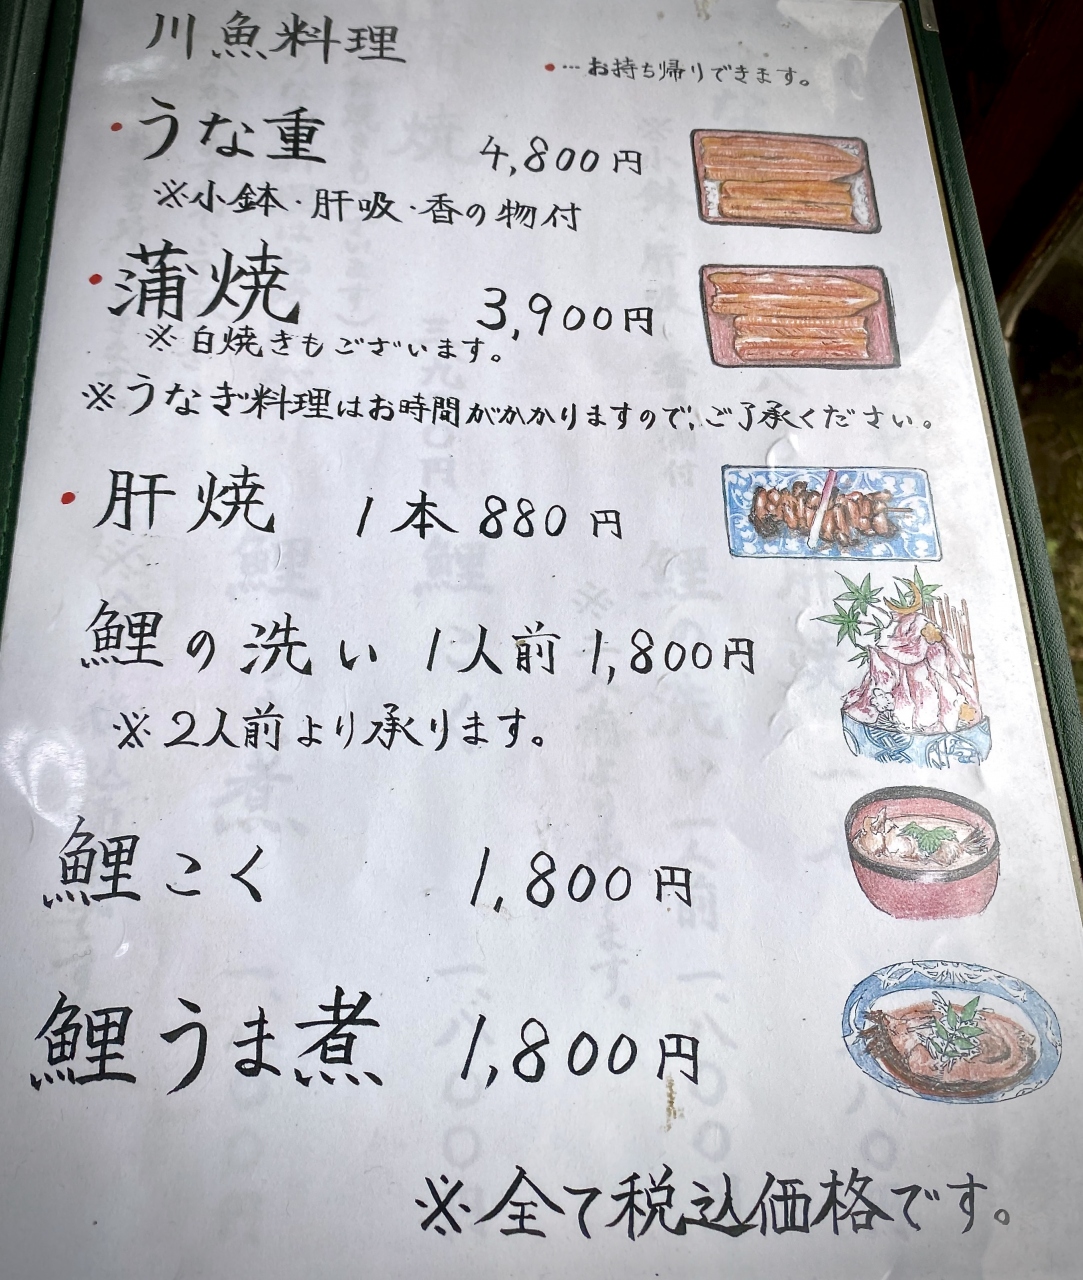 川魚料理
・…お持ち帰りできます。
・うな重 4,800円
※小鉢・肝吸・香の物付
・蒲焼 3,900円
※白焼きもございます。
※うなぎ料理はお時間がかかりますので、ご了承ください。
・肝焼 1本 880円
鯉の洗い 1人前 1,800円
※2人前より承ります。
鯉こく 1,800円
鯉うま煮 1,800円
※全て税込価格です。